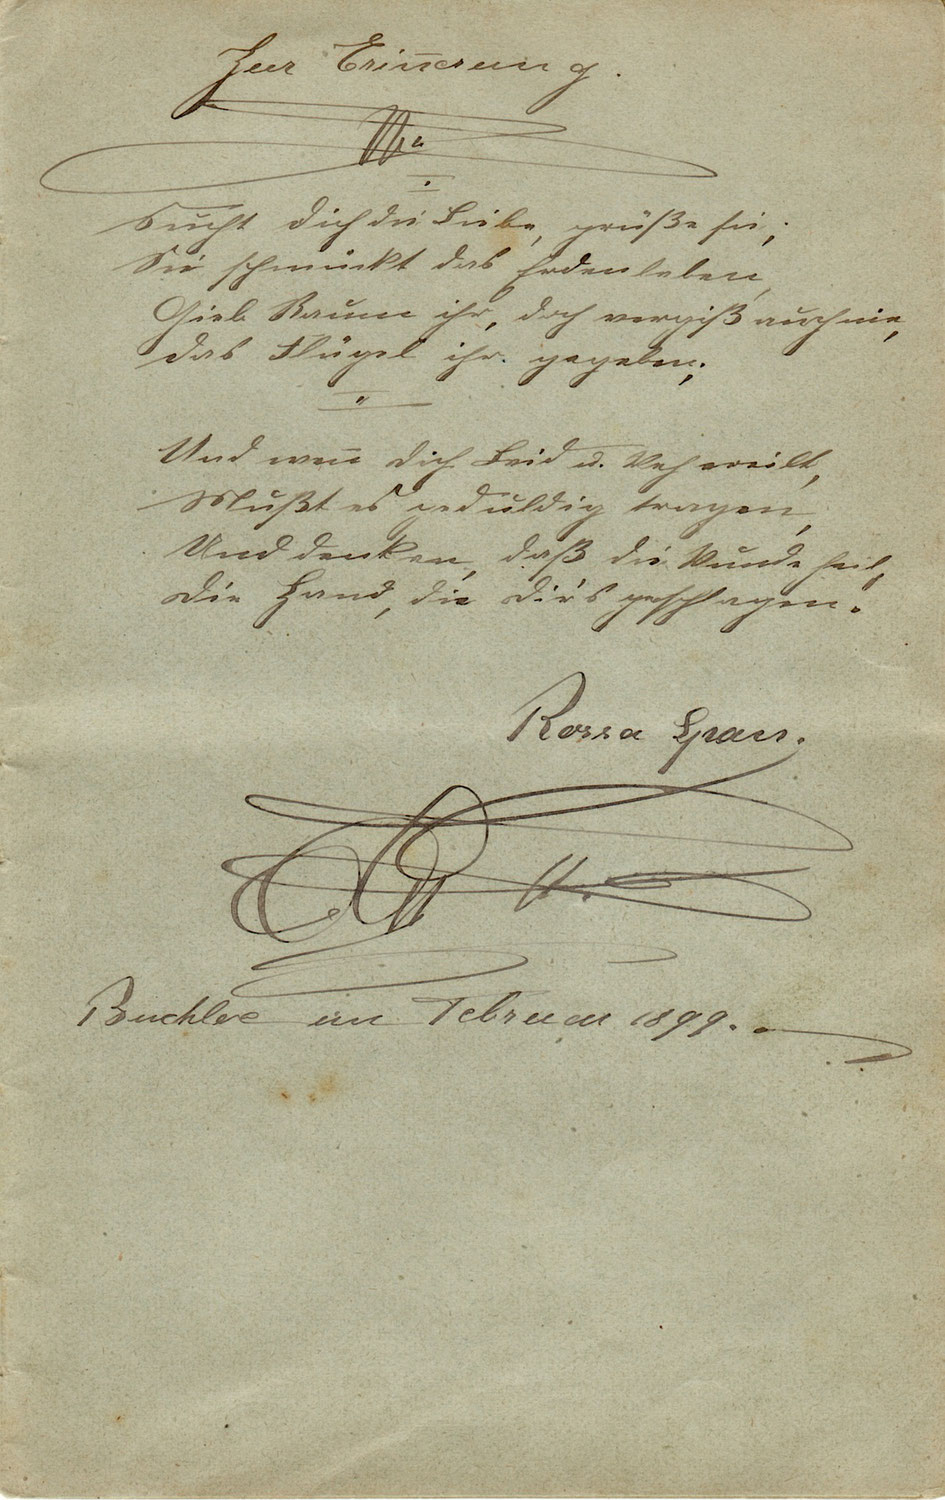 Zur Erinnerung.
Sucht dich die Liebe, grüße sie,
Sie schmückt das Erdenleben,
Gieb Raum ihr, doch vergiß auch nie,
das Flügel ihr gegeben;
Und wenn dich Leid u. Weh ereilt,
Mußt es geduldig tragen,
Und denken, daß die Wunde heil,
Die Hand, die dir's geschlagen.
Rossa
Buchloe im Februar 1899.